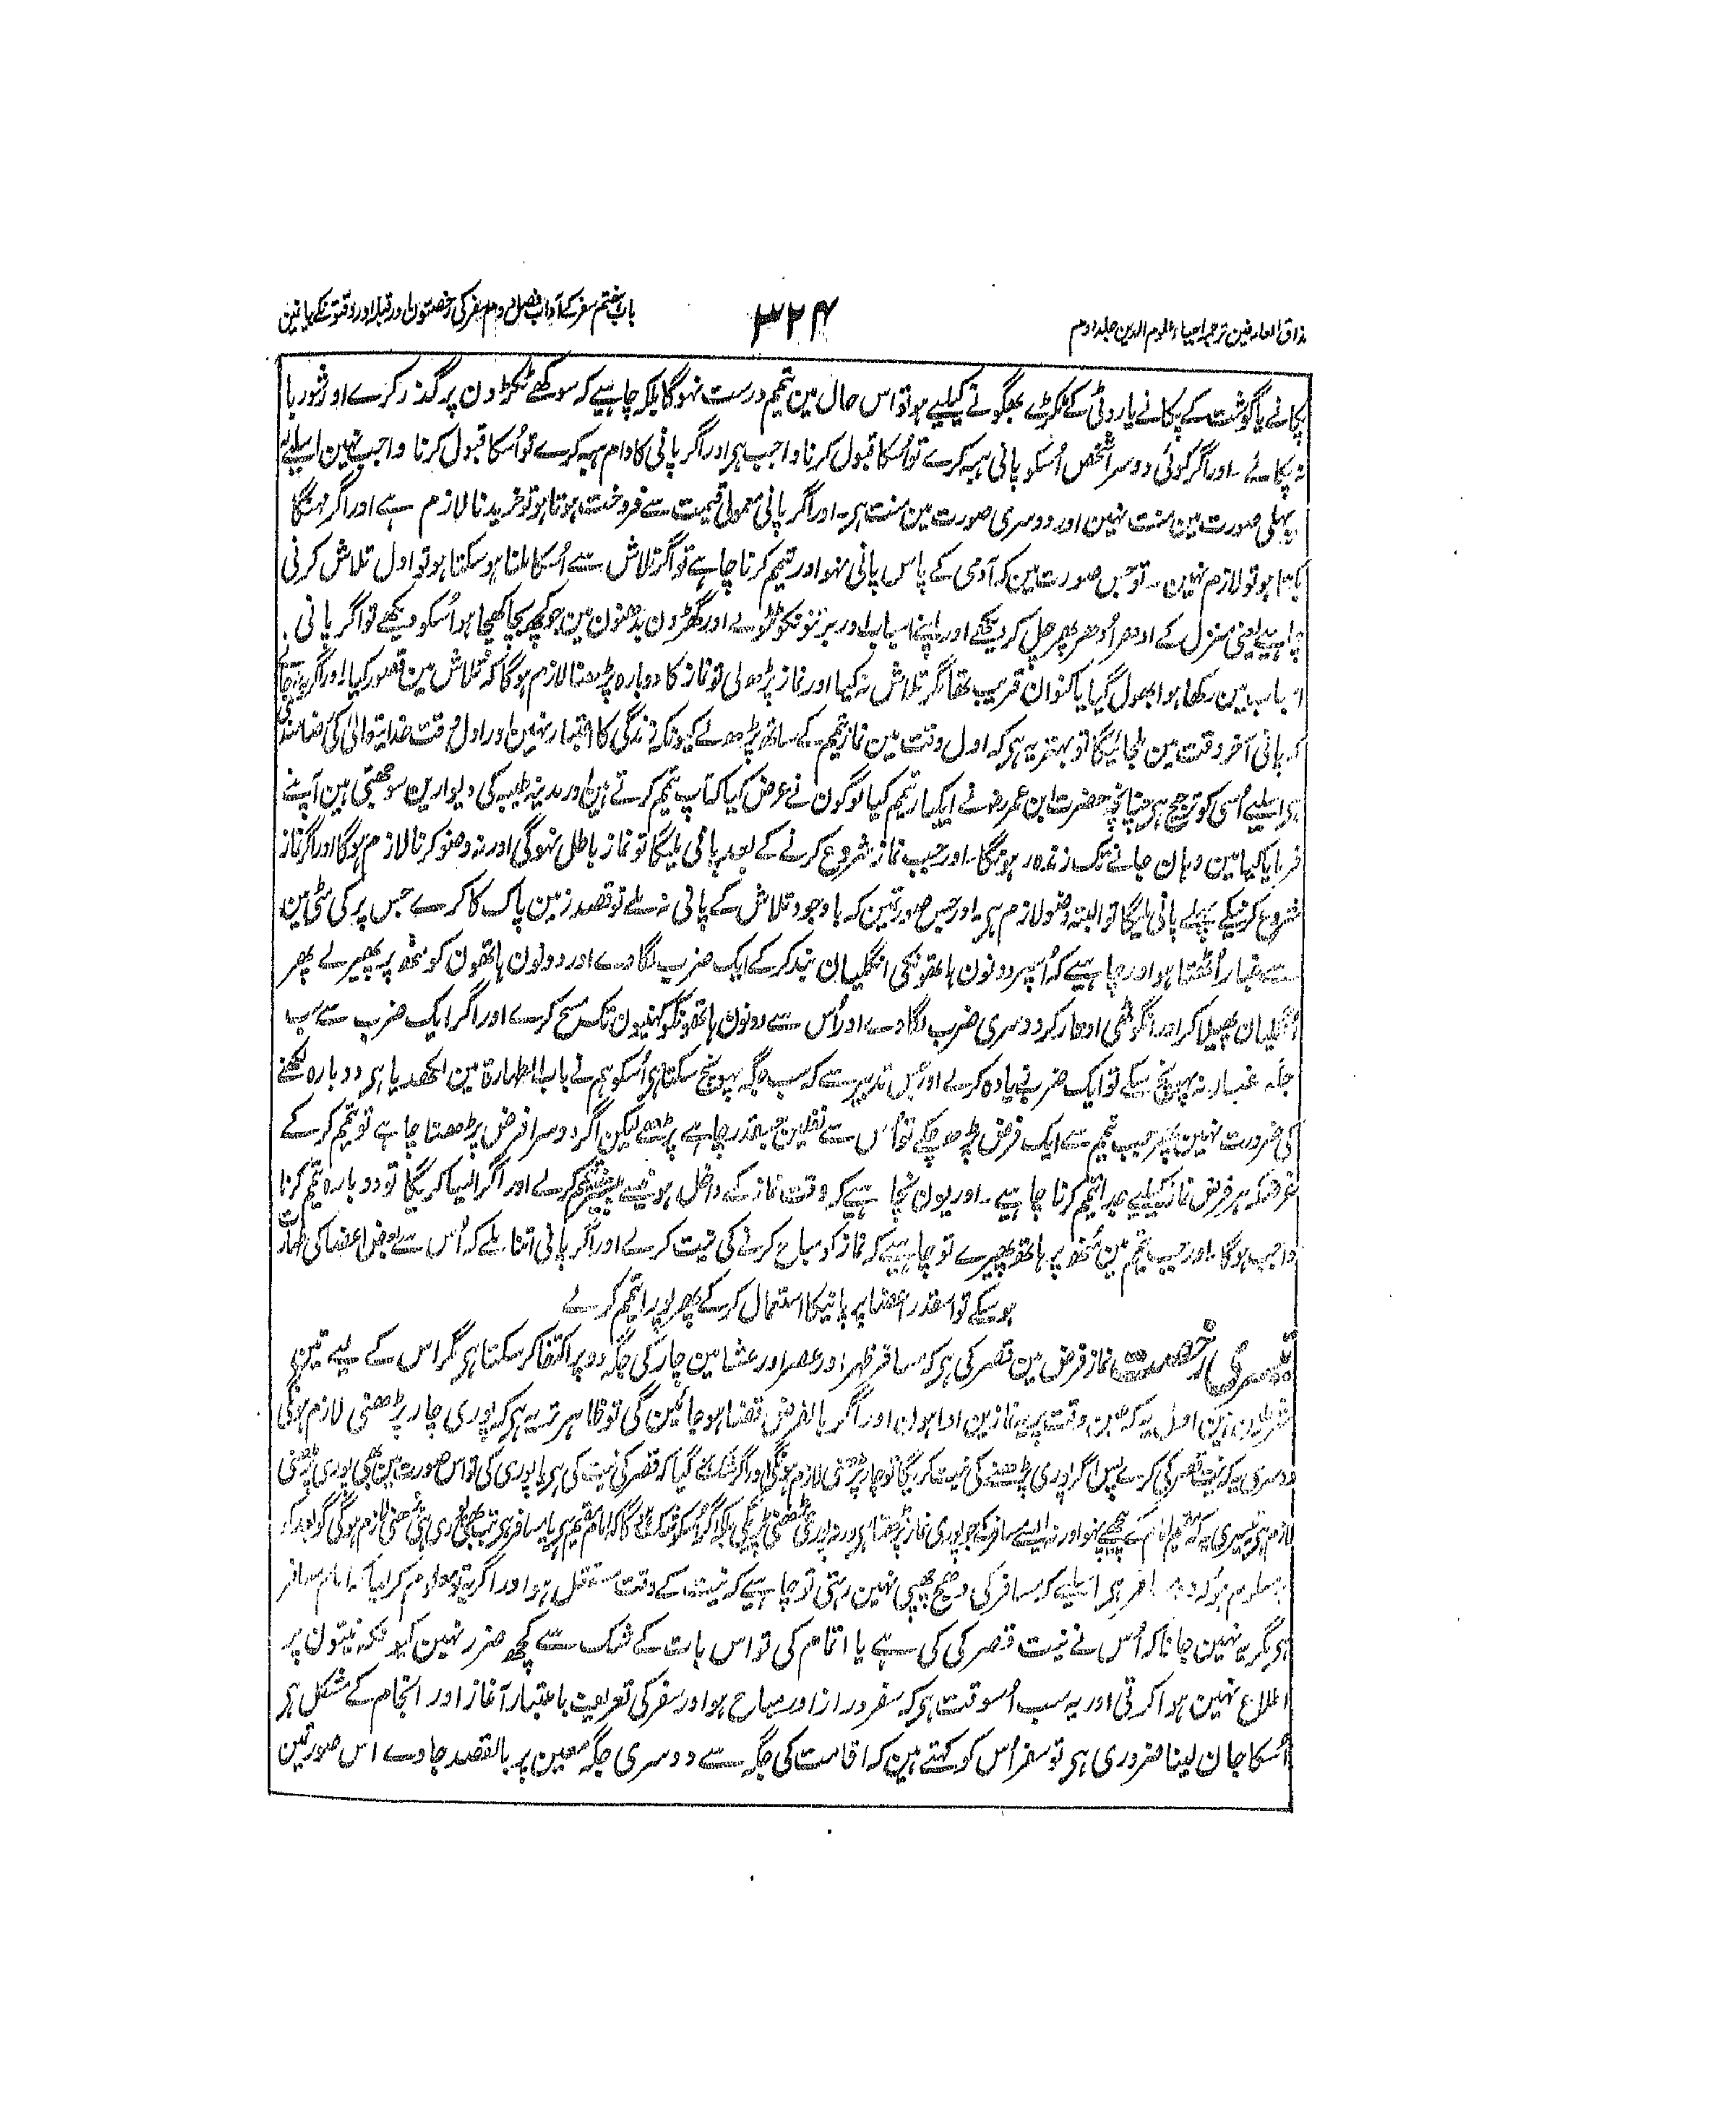 مذاق العارفین ترجمہ احیاء علوم الدین جلد دوم
۳۲۴
باب ہفتم سفر کے آداب فصل دوم سفر کی رخصتوں اور قبلہ اور وقتونکے بیانین
پکانے یا گوشت کے پکانے یا روٹی کے ٹکڑے بھگونے کیلیے ہو تو اس حال مین تیمم درست نہوگا بلکہ چاہیے کہ سوکھے ٹکڑون پر گذر کرے اور شوربا
نہ پکائے۔ اور اگر کوئی دوسرا شخص اُسکو پانی ہبہ کرے تو اُسکا قبول کرنا واجب ہی اور اگر پانی کا دام ہبہ کرے تو اُسکا قبول کرنا واجب نہین اسلیے کہ
پہلی صورت مین منت نہین اور دوسری صورت مین منت ہی۔ اور اگر پانی معمولی قیمت سے فروخت ہوتا ہو تو خریدنا لازم ہے اور اگر مہنگا
بکتا ہو تو لازم نہین۔ تو جس صورت مین کہ آدمی کے پاس پانی نہو اور تیمم کرنا چاہے تو اگر تلاش سے اُسکا ملنا ہو سکتا ہو تو اول تلاش کرنی
چاہیے یعنی منزل کے ادھر اُدھر پھر چل کر دیکھے اور اپنے اسباب اور برتنونکو ٹٹولے اور گھڑون بدھنون مین جو کچھ بچا کھچا ہو اُسکو دیکھے تو اگر پانی
اسباب مین رکھا ہوا بھول گیا یا کنوان قریب تھا مگر تلاش نہ کیا اور نماز پڑھ لی تو نماز کا دوبارہ پڑھنا لازم ہوگا کہ تلاش مین قصور کیا اور اگر یہ جانے
کہ پانی آخر وقت مین ملجائیگا تو بہتر یہ ہی کہ اول وقت مین نماز تیمم کے ساتھ پڑھ لے کیونکہ زندگی کا اعتبار نہین اور اول وقت خدایتعالیٰ کی رضامندی
ہی اسلیے اُسی کو ترجیح ہی چنانچہ حضرت ابن عمر رضہ نے ایکبار تیمم کیا لوگون نے عرض کیا کہ آپ تیمم کرتے ہین اور مدینہ طیبہ کی دیوارین سوجھتی ہین آپنے
فرمایا کہ کیا مین وہان جانے تک زندہ رہونگا۔ اور جب نماز شروع کرنے کے بعد پانی ملیگا تو نماز باطل نہوگی اور نہ وضو کرنا لازم ہوگا اور اگر نماز
شروع کرنیکے پہلے پانی ملیگا تو البتہ وضو لازم ہی۔ اور جس صورتمین کہ باوجود تلاش کے پانی نہ ملے تو قصد زمین پاک کا کرے جس پر کی مٹی مین
سے غبار اُٹھتا ہو اور چاہیے کہ اُسپر دونون ہاتھونکی انگلیان بند کر کے ایک ضرب لگاوے اور دونون ہاتھون کو منھ پر پھیرلے پھر
اُنگلیان پھیلا کر اور انگوٹھی اوتار کر دوسری ضرب لگاوے اور اُس سے دونون ہاتھونکو کہنیون تک مسح کرے اور اگر ایک ضرب سے سب
جگہ غبار نہ پہونچ سکے تو ایک ضرب زیادہ کرلے اور جس تدبیر سے کہ سب جگہ پہونچ سکتا ہی اُسکو ہم نے باب الطہارۃ مین لکھدیا ہی دوبارہ لکھنے
کی ضرورت نہین پھر جب تیمم سے ایک فرض پڑھ چکے تو اُس سے نفلین جسقدر چاہے پڑھے لیکن اگر دوسرا فرض پڑھنا چاہے تو تیمم کر کے
غرضکہ ہر فرض نماز کیلیے جدا تیمم کرنا چاہیے۔ اور یون نچاہیے کہ وقت نماز کے داخل ہونیسے پیشتر تیمم کرلے اور اگر ایسا کریگا تو دوبارہ تیمم کرنا
واجب ہوگا۔ اور جب تیمم مین مُنھ پر ہاتھ پھیرے تو چاہیے کہ نماز کو مباح کرنے کی نیت کرلے اور اگر پانی اتنا ملے کہ اُس سے بعض اعضا کی طہارت
ہو سکے تو اسقدر اعضا پر پانیکا استعمال کر کے پھر پورا تیمم کرلے
تیسری رخصت نماز فرض مین قصر کی ہی کہ مسافر ظہر اور عصر اور عشا مین چار کی جگہ دو پر اکتفا کر سکتا ہی مگر اس کے لیے تین
شرطین ہین اول یہ کہ جس وقت پر یہ نمازین ادا ہون اور اگر بالفرض قضا ہو جائین گی تو ظاہر تر یہ ہی کہ پوری چار پڑھنی لازم ہونگی
دوسری یہ کہ نیت قصر کی کرے پس اگر پوری پڑھنے کی نیت کریگا تو چار پڑھنی لازم ہونگی اور اگر شک کیا کہ قصر کی نیت کی ہی یا پوری کی تو اس صورت مین بھی پوری پڑھنی
لازم ہی تیسری یہ کہ مقیم امام کے پیچھے نہو اور نہ ایسے مسافر کے جو پوری نماز پڑھتا ہی ورنہ پوری پڑھنی پڑیگی بلکہ اگر اُسکو شک ہوگا کہ امام مقیم ہی یا مسافر ہی تب بھی پوری ہی پڑھنی لازم ہوگی گو بعد کو
معلوم ہو کہ وہ مسافر ہی اسلیے کہ مسافر کی وضع چھپی نہین رہتی تو چاہیے کہ نیت کے وقت مستقل ہو اور اگر یہ تو معلوم کر لیا کہ امام مسافر
ہی مگر یہ نہین جانا کہ اُس نے نیت قصر کی کی ہے یا اتمام کی تو اس بات کے شک سے کچھ ضرر نہین کیونکہ نیتون پر
اطلاع نہین ہوا کرتی اور یہ سب اُسوقت ہی کہ سفر دراز اور مباح ہو اور سفر کی تعریف باعتبار آغاز اور انجام کے مشکل ہی
اُسکا جان لینا ضروری ہی تو سفر اُس کو کہتے ہین کہ اقامت کی جگہ سے دوسری جگہ معین پر بالقصد جاوے اس صورتمین